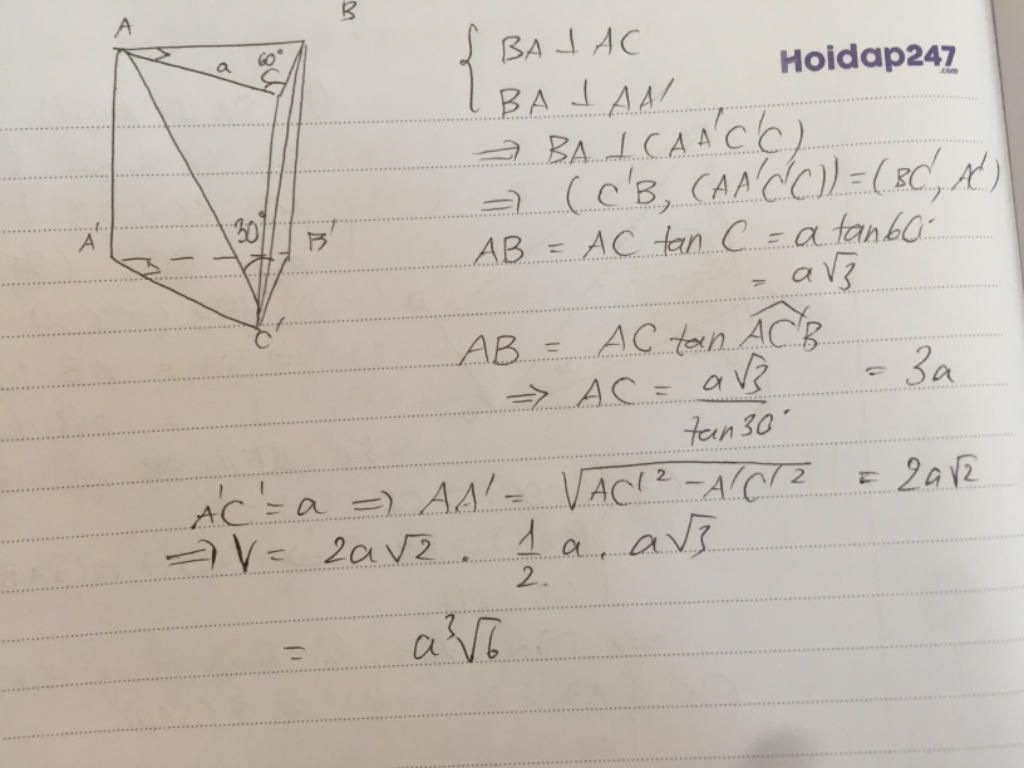 A
B
a
60°
C
A'
30°
B'
C'
Hoidap247
.com
{ BA ⊥ AC
BA ⊥ AA'
⇒ BA ⊥ (AA'C'C)
⇒ (C'B, (AA'C'C)) = (BC', AC')
AB = AC tan C = a tan60°
= a√3
AB = AC tan AC'B
⇒ AC = a√3 / tan30° = 3a
A'C' = a ⇒ AA' = √AC'² - A'C'² = 2a√2
⇒ V = 2a√2 . 1/2. a. a√3
= a³√6